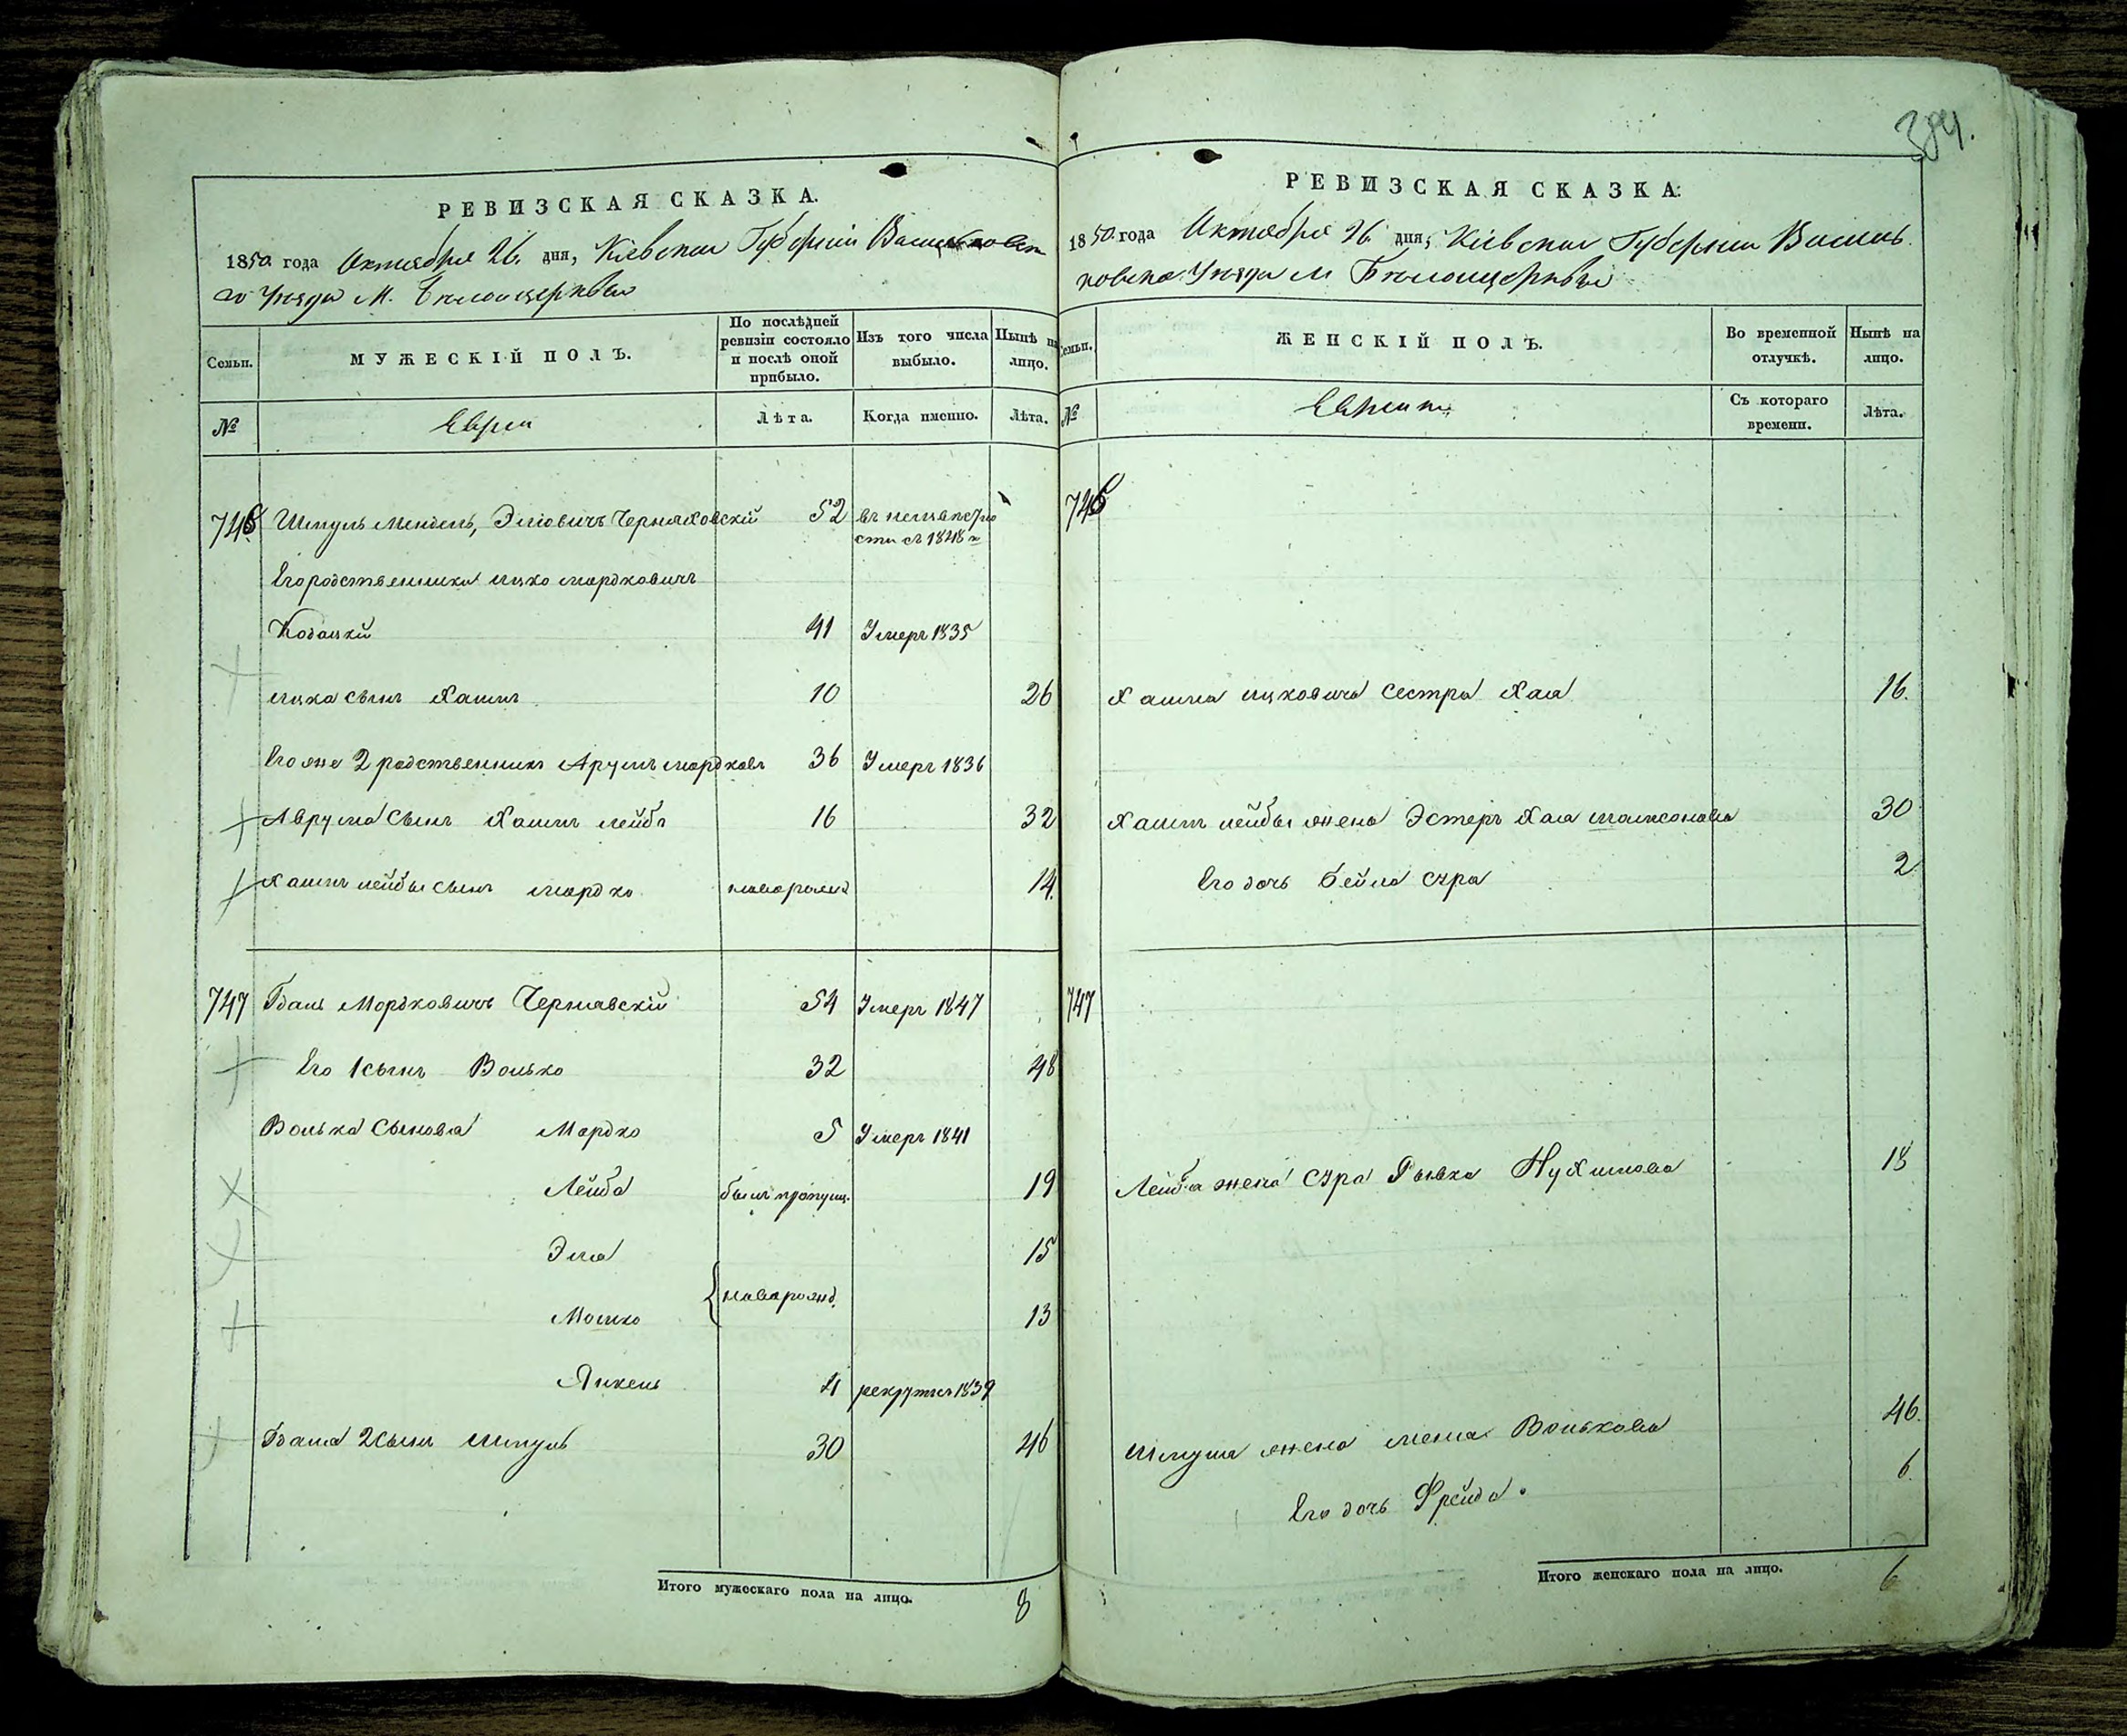 384.
РЕВИЗСКАЯ СКАЗКА.
1850 года Октября 26 дня, Кіевской Губерніи Васильковска
го Уѣзда М. Бѣлоцерковы
Семьи.
МУЖЕСКІЙ ПОЛЪ.
По послѣдней ревизіи состояло и послѣ оной прибыло.
Изъ того числа выбыло.
Нынѣ на лицо.
№
Евреи
Лѣта.
Когда именно.
Лѣта.
746 Шмуль Мендель, Эліовичъ Черняховскій 52 въ неизвѣстно
сти съ 1848 г
Его родственника Ицко Мордковичъ
Кодацкій 41 Умеръ 1835
Ицка сынъ Хаимъ 10 26
Его же 2 родственникъ Аврумъ Мордковъ 36 Умеръ 1836
Аврума сынъ Хаимъ Лейба 16 32
Хаимъ Лейбы сынъ Мордко новорожд 14.
747 Баль Мордковичъ Чернявскій 54 Умеръ 1847
Его 1 сынъ Волько 32 48
Волька сыновья Мордко 5 Умеръ 1841
Лейба былъ пропущ. 19
Эля 15
новорожд.
Мошко 13
Янкель 4 рекрутъ 1839
2 сынъ Шмуль 30 46
Итого мужескаго пола на лицо. 8
РЕВИЗСКАЯ СКАЗКА.
1850 года Октября 26 дня, Кіевской Губерніи Василь
ковска Уѣзда М Бѣлоцерковы
Семьи.
ЖЕНСКІЙ ПОЛЪ.
Во временной отлучкѣ.
Нынѣ на лицо.
№
Еврейки
Съ котораго времени.
Лѣта.
746
Хаима Ицковича сестра Хая 16.
Хаимъ Лейбы жена Эстеръ Хая 30
Его дочь Бейла Сура 2
747
Лейба жена Сура Рывка Нухимова 18
Шмуля жена Волькова 46.
Его дочь Фрейда. 6.
Итого женскаго пола на лицо. 6